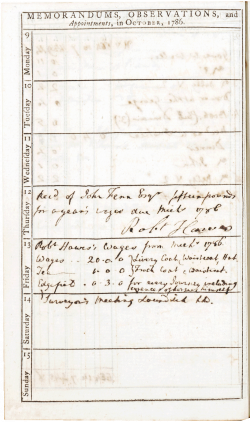 MEMORANDUMS, OBSERVATIONS, and
Appointments, in OCTOBER, 1786.
Monday 9
Tuesday 10
Wednesday 11
Thursday 12
Rec'd of John Fenn Esqr
for a year's wages due Mich's 1786
Robt Hawes
Friday 13
Robt Hawes's Wages from Mich's 1786
Wages - 20-0-0 Livery Coat, Waistcoat, Hat.
Tea 1-0-0 Frock Coat, Waistcoat.
0-3-0 for every Journey including
himself
Saturday 14
Surveyors Meeting
Sunday 15